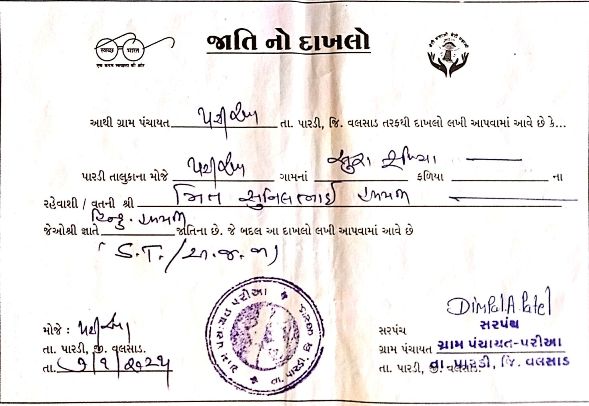 સ્વચ્છ ભારત
એક કદમ સ્વચ્છતા કી ઓર
જાતિ નો દાખલો
બેટી બચાવો બેટી પઢાવો
આથી ગ્રામ પંચાયત પરીઆ તા. પારડી, જિ. વલસાડ તરફથી દાખલો લખી આપવામાં આવે છે કે...
પારડી તાલુકાના મોજે પરીઆ ગામનાં ફળિયા ના
રહેવાશી / વતની શ્રી મિત સુનિલભાઈ
જેઓશ્રી જાતે હિન્દુ જાતિના છે. જે બદલ આ દાખલો લખી આપવામાં આવે છે
S.T. / અ.જ.જા
મોજે : પરીઆ
તા. પારડી, જી. વલસાડ.
તા. ૭/૧/૨૦૨૫
Dimpal A. Patel
સરપંચ
સરપંચ
ગ્રામ પંચાયત ગ્રામ પંચાયત-પરીઆ
તા. પારડી, જી. વલસાડ. તા. પારડી, જિ. વલસાડ